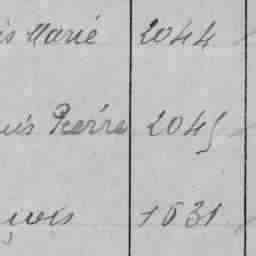 is Marié 2044
uis Pierre 2045
çois 1631